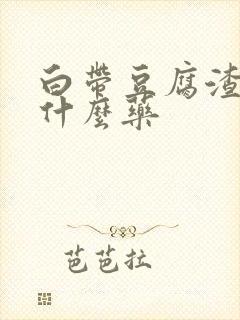 白帶豆腐渣
什麼藥
芭芭拉